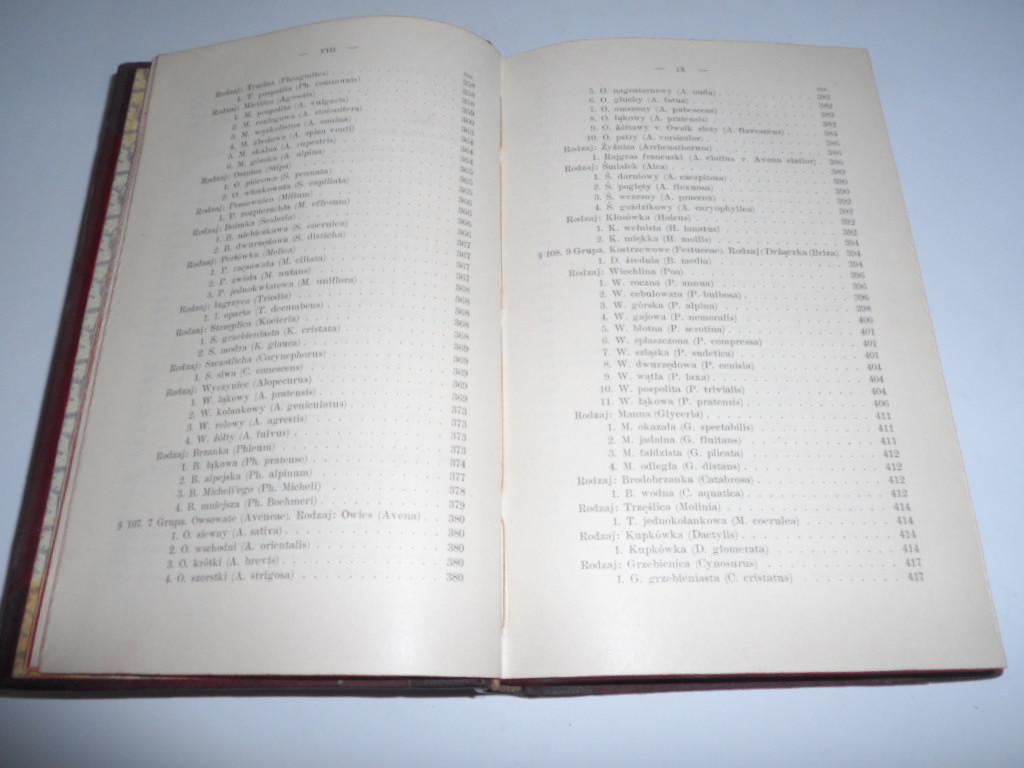 — VIII —
Str.
Rodzaj: Trzcina (Phragmites) . . . 358
1. T. pospolita (Ph. communis) . . . 358
Rodzaj: Mietlica (Agrostis) . . . 358
1. M. pospolita (A. vulgaris) . . . 359
2. M. rozłogowa (A. stolonifera) . . . 360
3. M. wązkolistna (A. canina) . . . 363
4. M. zbożowa (A. spica venti) . . . 364
5. M. skalna (A. rupestris) . . . 364
6. M. górska (A. alpina) . . . 364
Rodzaj: Ostnica (Stipa) . . . 365
1. O. piórowa (S. pennata) . . . 365
2. O. włoskowata (S. capillata) . . . 365
Rodzaj: Prosownica (Milium) . . . 366
1. P. rozpierzchła (M. effusum) . . . 366
Rodzaj: (Sesleria) . . . 366
1. B. niebieskawa (S. coerulea) . . . 366
2. B. dwurzędowa (S. disticha) . . . 367
Rodzaj: Perłówka (Melica) . . . 367
1. P. rzęsowata (M. ciliata) . . . 367
2. P. zwisła (M. nutans) . . . 367
3. P. jednokwiatowa (M. uniflora) . . . 368
Rodzaj: Izgrzyca (Triodia) . . . 368
1. I. oparta (T. decumbens) . . . 368
Rodzaj: Strzęplica (Koeleria) . . . 368
1. S. grzebieniasta (K. cristata) . . . 368
2. S. modra (K. glauca) . . . 369
Rodzaj: Szczotlicha (Corynephorus) . . . 369
1. S. siwa (C. canescens) . . . 369
Rodzaj: Wyczyniec (Alopecurus) . . . 369
1. W. łąkowy (A. pratensis) . . . 369
2. W. kolankowy (A. geniculatus) . . . 373
3. W. rolowy (A. agrestis) . . . 373
4. W. żółty (A. fulvus) . . . 373
Rodzaj: Brzanka (Phleum) . . . 373
1. B. łąkowa (Ph. pratense) . . . 374
2. B. alpejska (Ph. alpinum) . . . 377
3. B. Micheli'ego (Ph. Micheli) . . . 378
4. B. mniejsza (Ph. Boehmeri) . . . 379
§ 107. 7 Grupa. Owsowate (Aveneae). Rodzaj: Owies (Avena) . 380
1. O. siewny (A. sativa) . . . 380
2. O. wschodni (A. orientalis) . . . 380
3. O. krótki (A. brevis) . . . 380
4. O. szorstki (A. strigosa) . . . 380
— IX —
Str.
5. O. nagoziarnowy (A. nuda) . . . 382
6. O. głuchy (A. fatua) . . . 382
7. O. omszony (A. pubescens) . . . 383
8. O. łąkowy (A. pratensis) . . . 382
9. O. żółtawy v. Owsik złoty (A. flavescens) . . . 384
10. O. pstry (A. versicolor) . . . 385
Rodzaj: Żyźnica (Arrhenatherum) . . . 386
1. Rajgras francuski (A. elatius v. Avena elatior) . . . 386
Rodzaj: Śmiałek (Aira) . . . 389
1. Ś. darniowy (A. caespitosa) . . . 390
2. Ś. pogięty (A. flexuosa) . . . 390
3. Ś. wczesny (A. praecox) . . . 392
4. Ś. goździkowy (A. caryophyllea) . . . 392
Rodzaj: Kłosówka (Holcus) . . . 392
1. K. wełnista (H. lanatus) . . . 392
2. K. miękka (H. mollis) . . . 394
§ 108. 9 Grupa. Kostrzewowe (Festuceae). Rodzaj: Drżączka (Briza) 394
1. D. średnia (B. media) . . . 394
Rodzaj: Wiechlina (Poa) . . . 396
1. W. roczna (P. annua) . . . 396
2. W. cebulowata (P. bulbosa) . . . 396
3. W. górska (P. alpina) . . . 398
4. W. gajowa (P. nemoralis) . . . 400
5. W. błotna (P. serotina) . . . 401
6. W. spłaszczona (P. compressa) . . . 401
7. W. szląska (P. sudetica) . . . 401
8. W. dwurzędowa (P. cenisia) . . . 404
9. W. wątła (P. laxa) . . . 404
10. W. pospolita (P. trivialis) . . . 404
11. W. łąkowa (P. pratensis) . . . 406
Rodzaj: Manna (Glyceria) . . . 411
1. M. okazała (G. spectabilis) . . . 411
2. M. jadalna (G. fluitans) . . . 411
3. M. fałdzista (G. plicata) . . . 412
4. M. odległa (G. distans) . . . 412
Rodzaj: Brodobrzanka (Catabrosa) . . . 412
1. B. wodna (C. aquatica) . . . 412
Rodzaj: Trzęślica (Molinia) . . . 414
1. T. jednokolankowa (M. coerulea) . . . 414
Rodzaj: Kupkówka (Dactylis) . . . 414
1. Kupkówka (D. glomerata) . . . 414
Rodzaj: Grzebienica (Cynosurus) . . . 417
1. G. grzebieniasta (C. cristatus) . . . 417